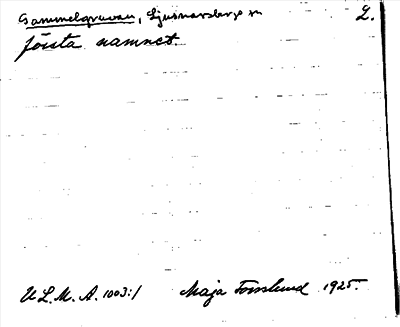 Gammelgruvan, Ljusnarsbergs sn 2.
första namnet.
U.L.M.A. 1003:1 Maja Forslund 1925.